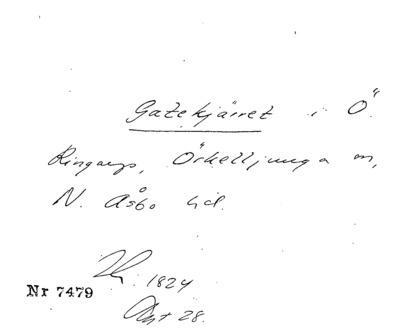 Gatekjärret i Ö.
Ringarp, Örkelljunga sn,
N. Åsbo hd.
1824
Nr 7479
28.